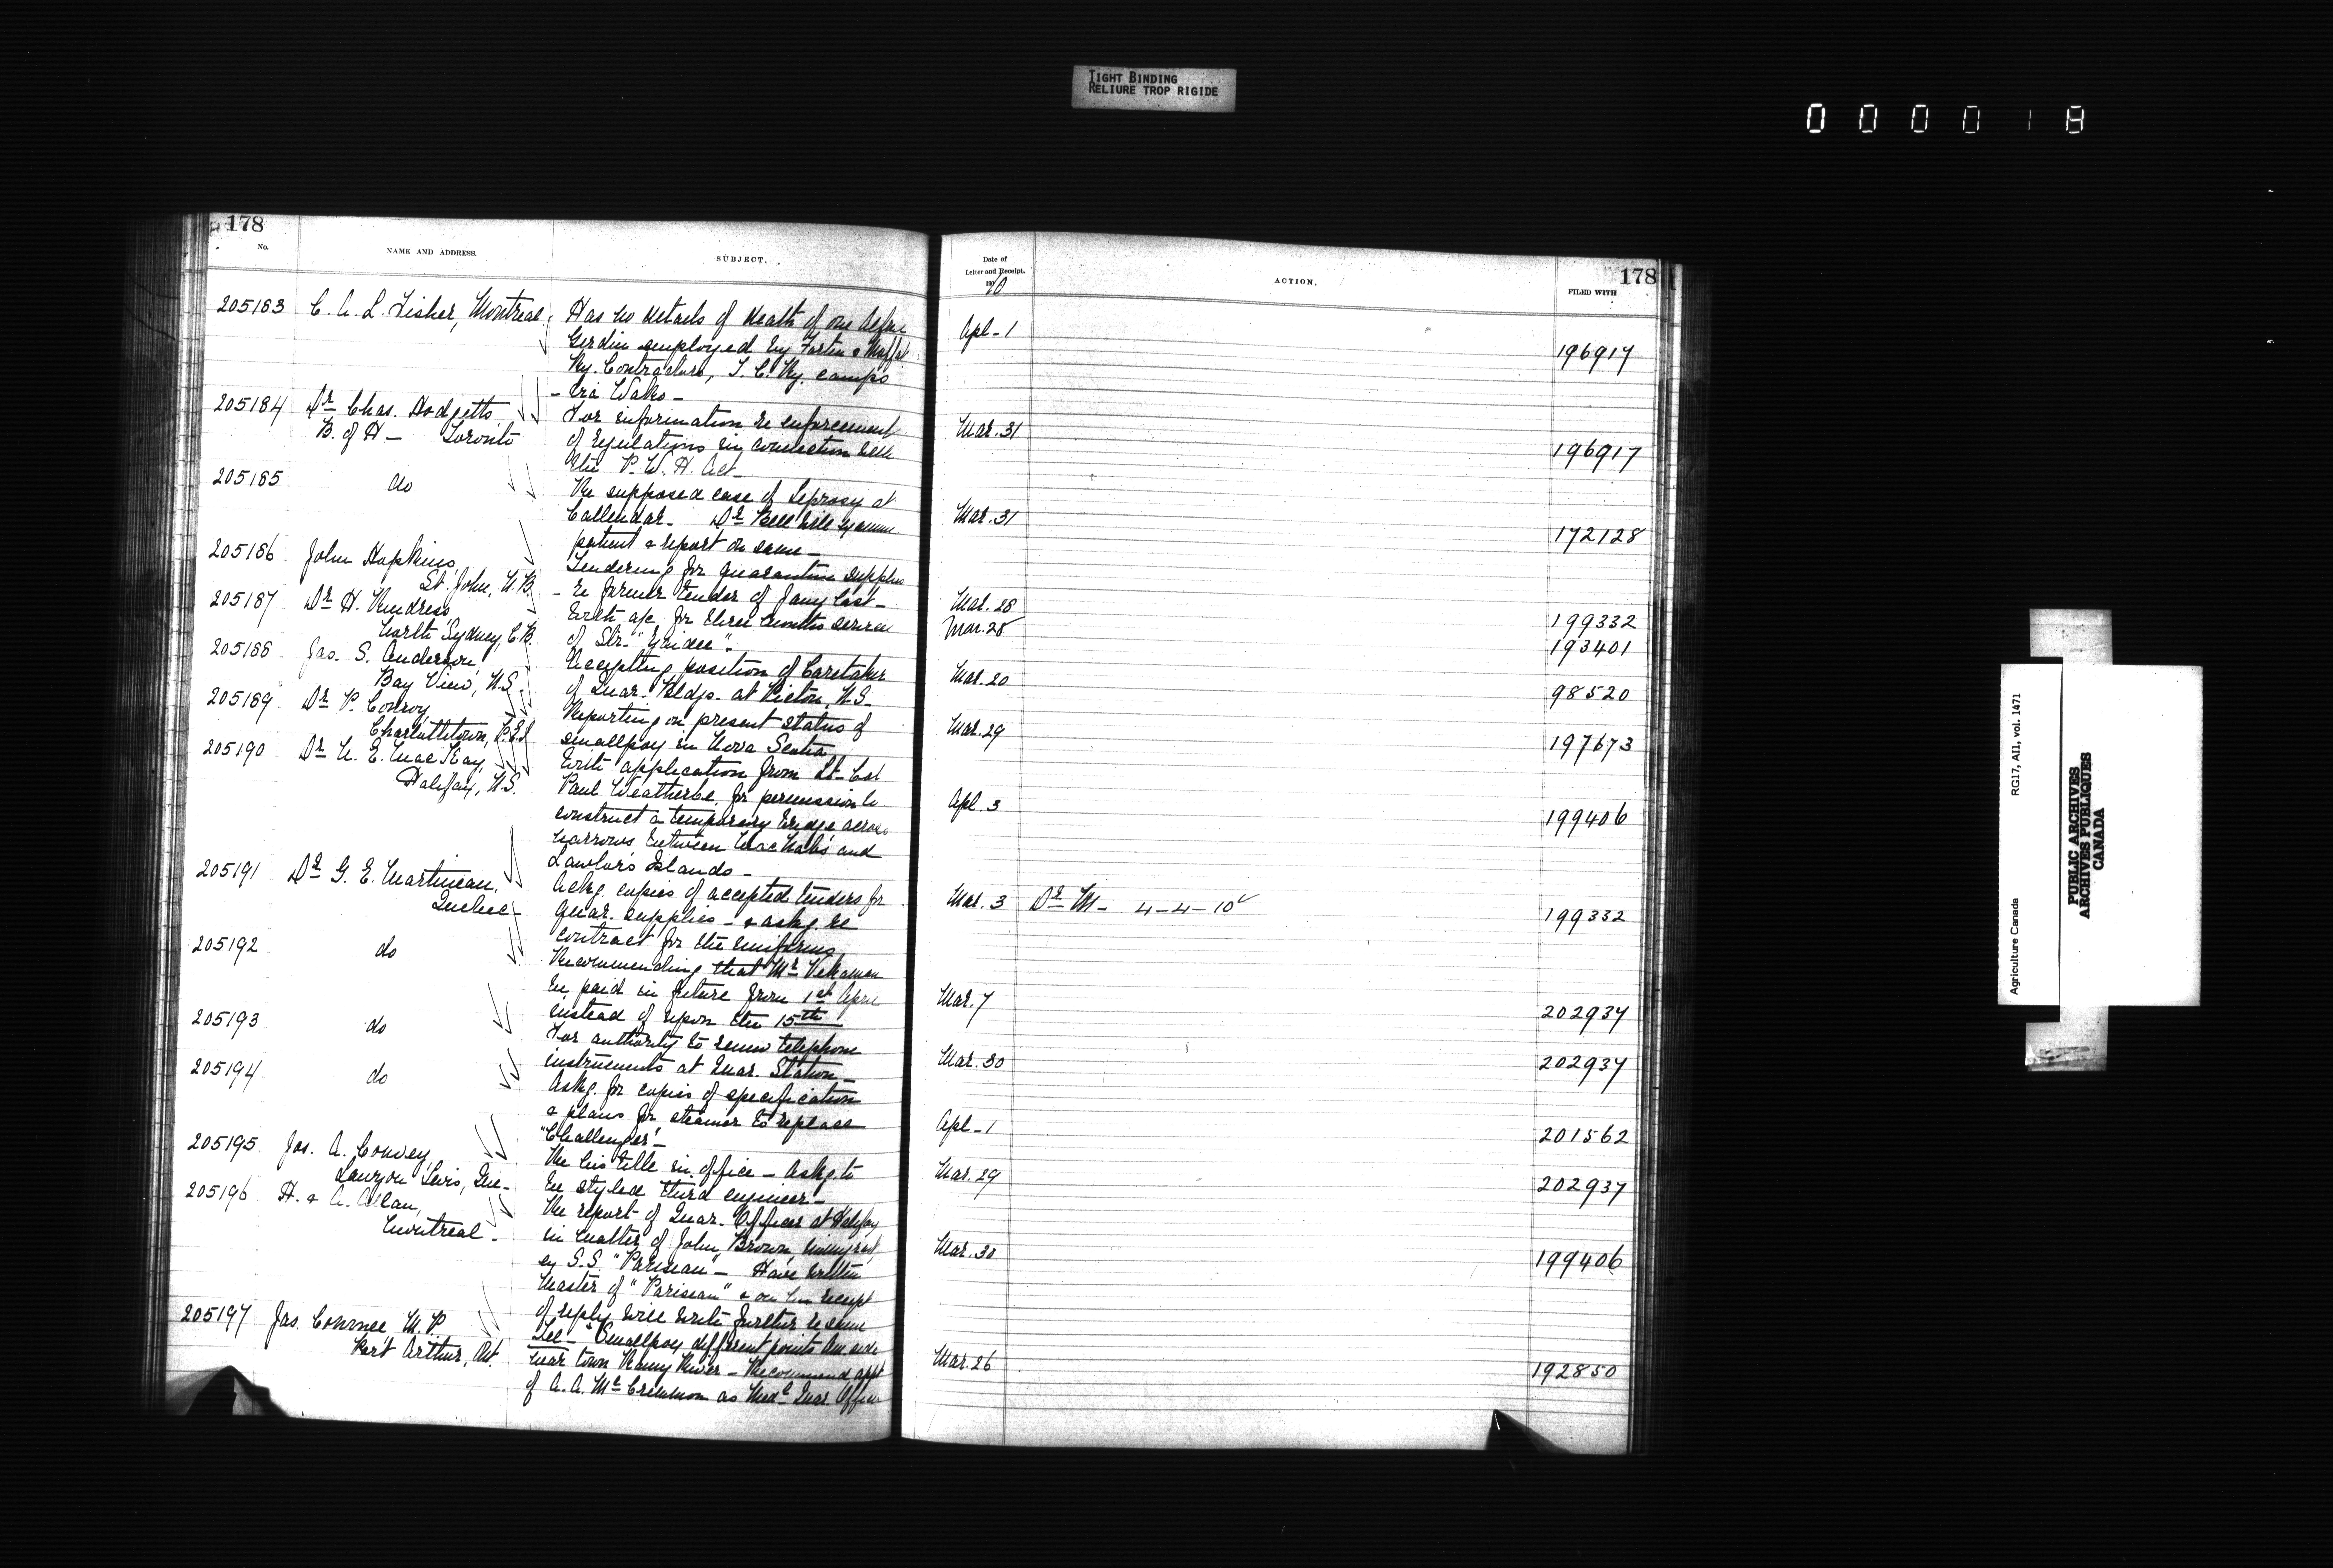 TIGHT BINDING
RELIURE TROP RIGIDE
000018
178
No.
NAME AND ADDRESS.
SUBJECT.
205183 C. A. L. Fisher, Montreal. Has no details of death of one
employed by Fortin & Moffat
Ry. Contractors, T. C. Ry. camps
via Wako -
205184 Dr Chas. Hodgetts For information re enforcement
B. of H - Toronto of regulations in connection with
the P. W. H. Act
205185 do Re supposed case of Leprosy at
Callendar. Dr Bell will examine
patient & report on same -
205186 John Hopkins, Tendering for quarantine supplies
St. John, N.B. - re former tender of Jany last -
205187 Dr H. With a/c for three months service
North Sydney, C.B. of Str.
205188 Jas. S. Anderson, Accepting position of Caretaker
Bay View, N.S. of Quar. Bldgs. at Pictou, N.S.
205189 Dr P. Conroy, Reporting on present status of
Charlottetown, P.E.I. smallpox in Nova Scotia
205190 Dr N. E. MacKay, With application from Lt-Col
Halifax, N.S. Paul Weatherbe, for permission to
construct a temporary bridge across
narrows between MacNab's and
Lawlor's Islands -
205191 Dr G. E. Martineau, Ackg. copies of accepted tenders for
Quebec - quar. supplies - & askg. re
contract for the uniforms
205192 do Recommending that Mr
be paid in future from 1st April
instead of upon the 15th
205193 do For authority to renew telephone
instruments at Quar. Station -
205194 do Askg. for copies of specification
& plans for steamer to replace
"Challenger" -
205195 Jas. A. Convey, Re his title in office - Askg. to
Lauzon Levis, Que - be styled third engineer -
205196 H. & A. Allan, Re report of Quar. Officer at Halifax
Montreal - in matter of John Brown, immigrant
ex S.S. "Parisian" - Have written
master of "Parisian" & on receipt
of reply will write further re same
205197 Jas. Conmee M.P. Tel - Smallpox different points
Port Arthur, Ont. near town Rainy River - Recommend appt
of A. A. McCrimmon as Medl Quar. Officer
178
Date of
Letter and Receipt.
1910
ACTION.
FILED WITH
Apl - 1 196917
Mar. 31 196917
Mar. 31 172128
Mar. 28 199332
Mar. 28 193401
Mar. 20 98520
Mar. 29 197673
Apl. 3 199406
Mar. 3 Dr M - 4-4-10 199332
Mar. 7 202937
Mar. 30 202937
Apl - 1 201562
Mar. 29 202937
Mar. 30 199406
Mar. 26 192850
Agriculture Canada RG17, AII, vol. 1471
PUBLIC ARCHIVES
ARCHIVES PUBLIQUES
CANADA